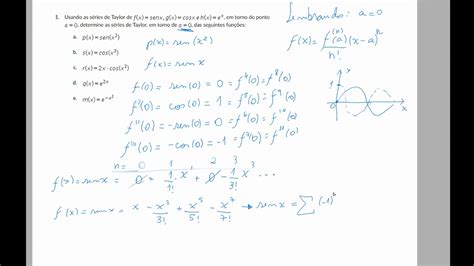 1. Usando as séries de Taylor de f(x) = senx, g(x) = cosx e h(x) = eˣ, em torno do ponto
a = 0, determine as séries de Taylor, em torno de a = 0, das seguintes funções:
a. p(x) = sen(x²)
b. s(x) = cos(x²)
c. r(x) = 2x · cos(x²)
d. q(x) = e^(x²)
e. m(x) = e^(-x²)
p(x) = sen(x²)
Lembrando: a=0
f(x) = f⁽ⁿ⁾(a)(x-a)ⁿ
n!
f(0) = sen(0) = 0 = f⁴(0) = f⁸(0)
f'(0) = cos(0) = 1 = f⁵(0) = f⁹(0)
f''(0) = -sen(0) = 0 = f⁶(0) = f¹⁰(0)
f'''(0) = -cos(0) = -1 = f⁷(0) = f¹¹(0)
y
1
x
n= 0 1 2 3
f(x) = senx = 0 + 1/1! x¹ + 0 - 1/3! x³ ...
f(x) = senx = x - x³/3! + x⁵/5! - x⁷/7! → senx = Σ (-1)ⁿ